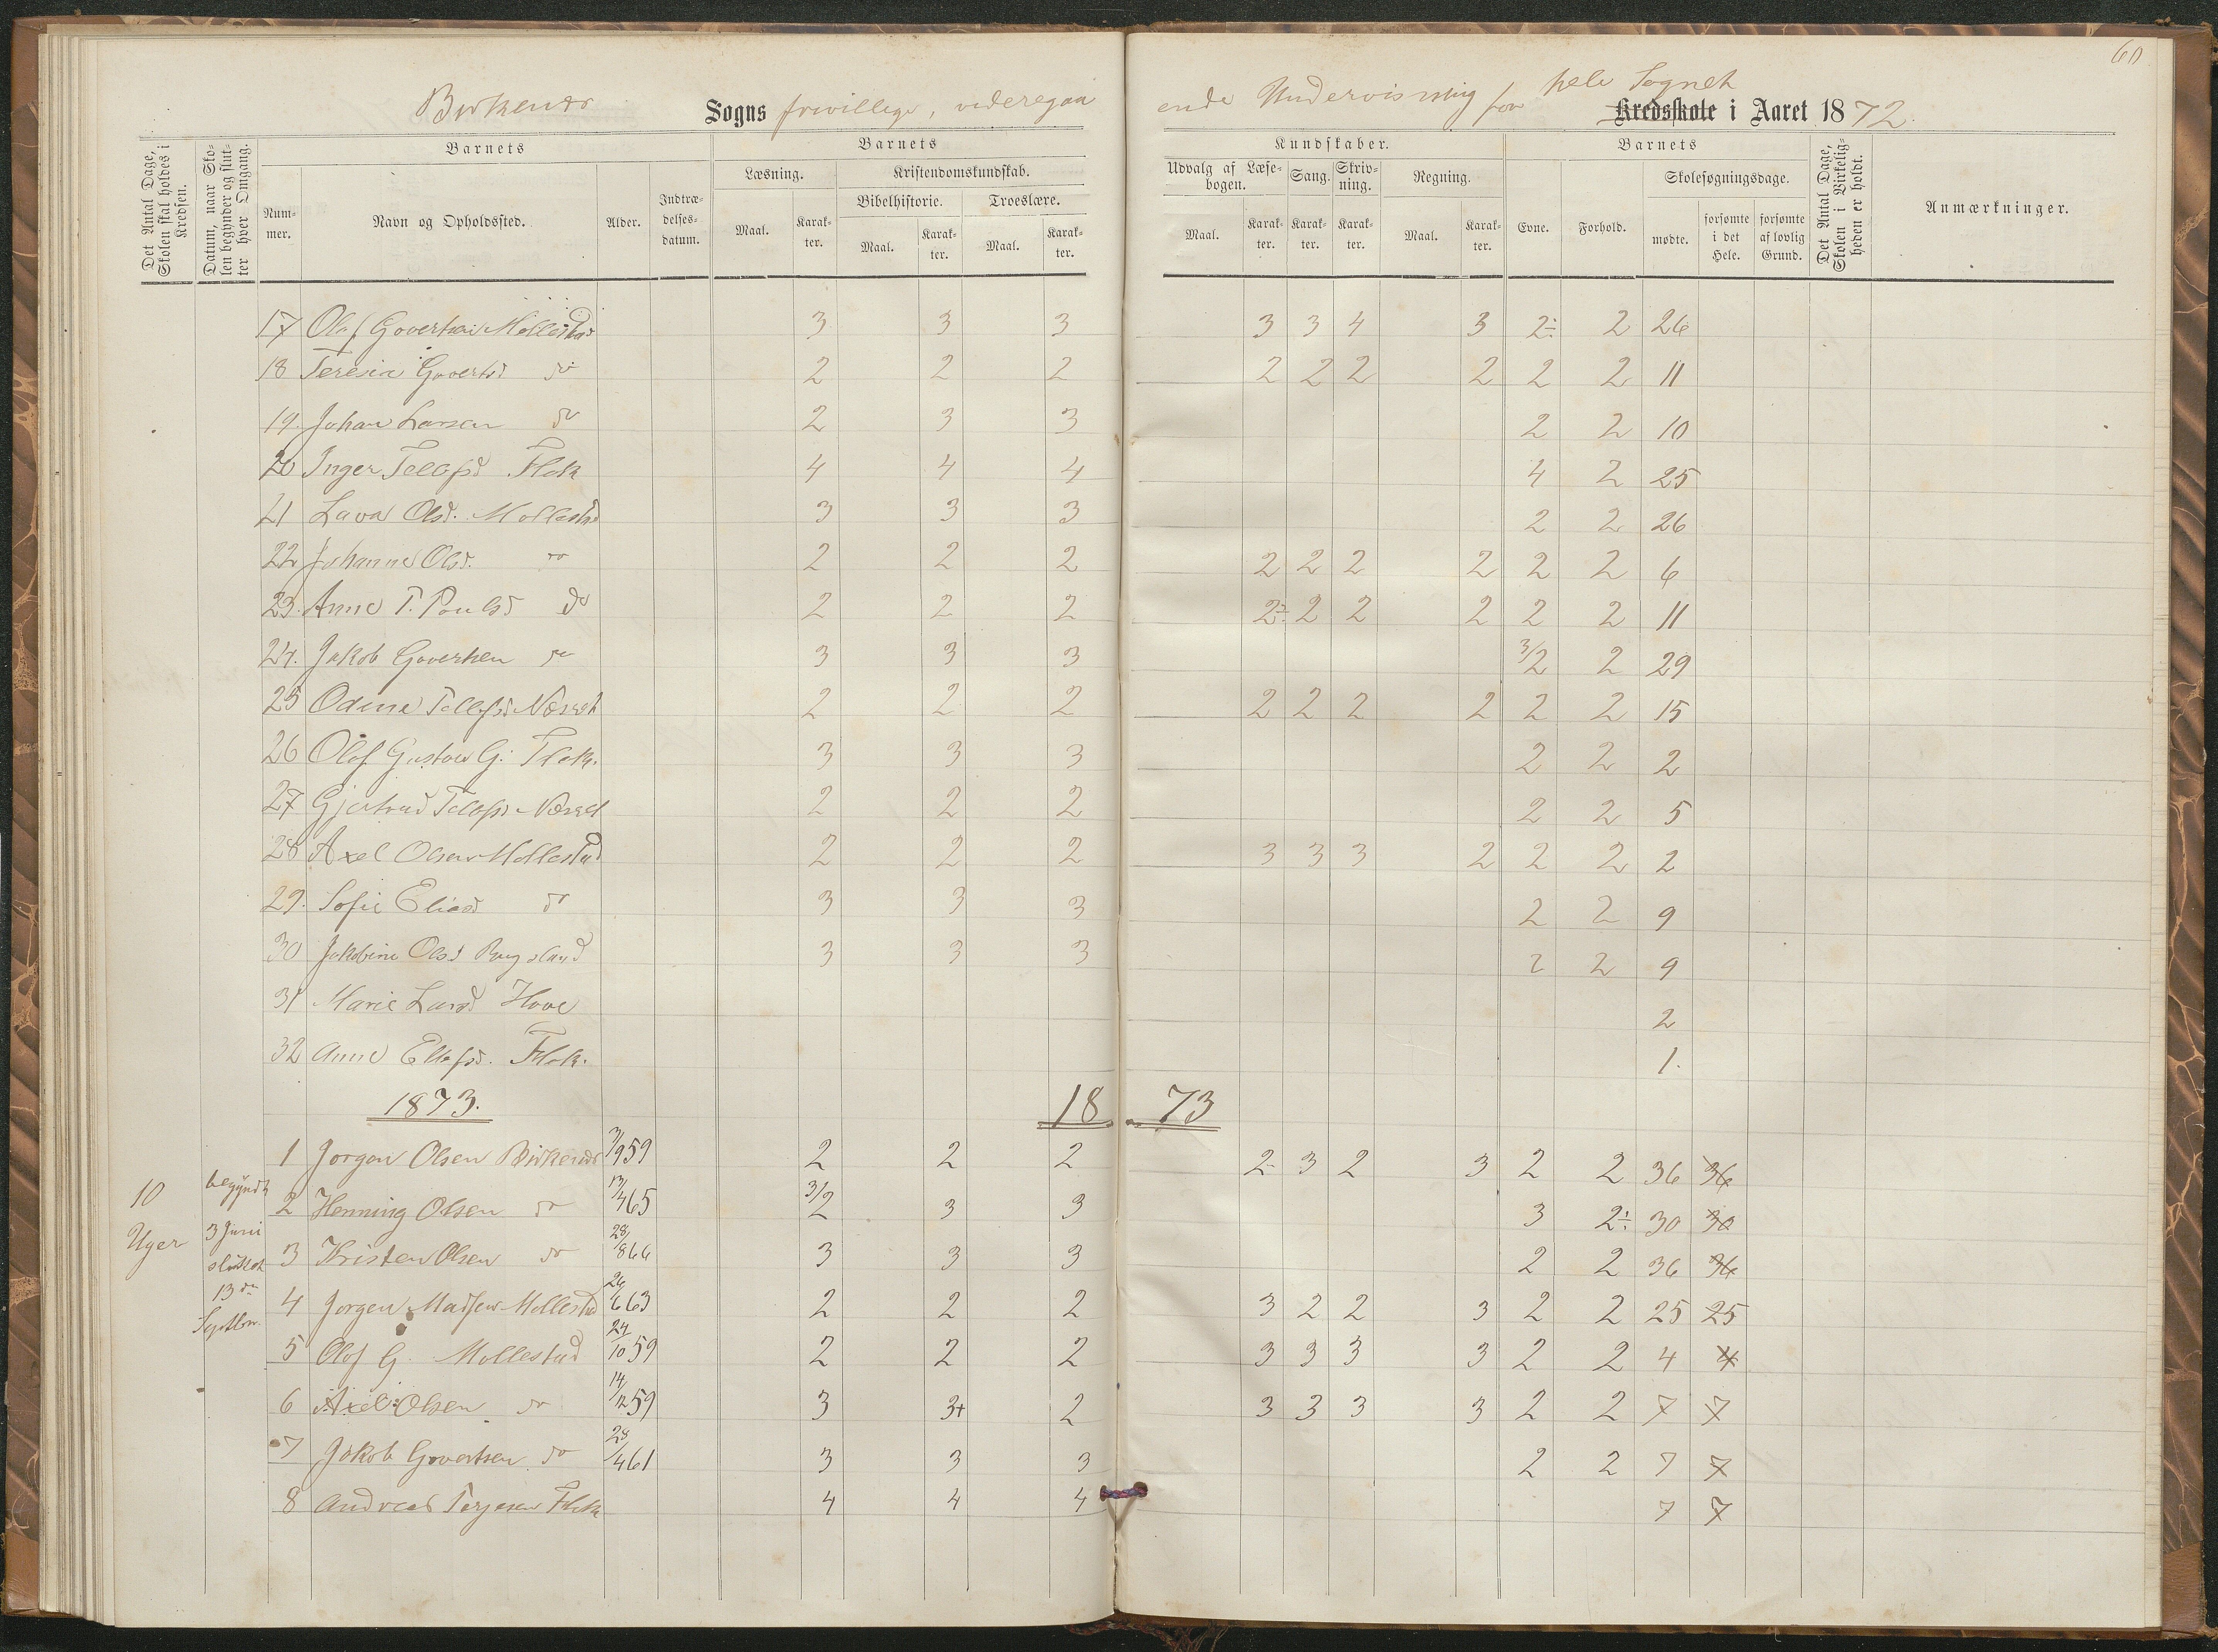 60
Birkenes Sogns frivillige, videregaaende Undervisning for hele Sognet Kredsskole i Aaret 1872.
Det Antal Dage, Skolen skal holdes i Kredsen.
Datum, naar Skolen begynder og slutter hver Omgang.
Barnets
Nummer.
Navn og Opholdssted.
Alder.
Indtrædelsesdatum.
Barnets
Læsning.
Maal.
Karakter.
Kristendomskundskab.
Bibelhistorie.
Maal.
Karakter.
Troeslære.
Maal.
Karakter.
Kundskaber.
Udvalg af Læsebogen.
Maal.
Karakter.
Sang.
Karakter.
Skrivning.
Karakter.
Regning.
Maal.
Karakter.
Barnets
Evne.
Forhold.
Skolesøgningsdage.
mødte.
forsømte i det Hele.
forsømte af lovlig Grund.
Det Antal Dage, Skolen i Virkeligheden er holdt.
Anmærkninger.
17 Olaf Govertsen Mollestad 3 3 3 3 3 4 3 2÷ 2 26
18 Teresia Govertsd do 2 2 2 2 2 2 2 2 2 11
19. Johan Larsen do 2 3 3 2 2 10
20 Inger Tellefsd Flak 4 4 4 4 2 25
21 Lava Olsd. Mollestad 3 3 3 2 2 26
22 Johanne Olsd. do 2 2 2 2 2 2 2 2 2 6
23. Anne T. Paulsd do 2 2 2 2÷ 2 2 2 2 2 11
24. Jakob Govertsen do 3 3 3 3/2 2 29
25 Odine Tellefsd Næset 2 2 2 2 2 2 2 2 2 15
26 Olaf Gustav G. Flak. 3 3 3 2 2 2
27 Gjertrud Tellefsd Næset 2 2 2 2 2 5
28 Axel Olsen Mollestad 2 2 2 3 3 3 2 2 2 2
29. Sofie Eliasd do 3 3 3 2 2 9
30 Jakobine Olsd 3 3 3 2 2 9
31 Marie Larsd Hove 2
32 Anne Ellefsd. Flak. 1.
1873. 18 73
1 Jørgen Olsen Birkenes 3/9 59 2 2 2 2 3 2 3 2 2 36 36
2 Henning Olsen do 13/4 65 3/2 3 3 3 2÷ 30 30
3 Kristen Olsen do 28/8 66 3 3 3 2 2 36 36
4 Jørgen Madsen Mollestad 26/6 63 2 2 2 3 2 2 3 2 2 25 25
5 Olaf G. Mollestad 24/10 59 2 2 2 3 3 3 3 2 2 4 4
6 Axel Olsen do 14/12 59 3 3+ 2 3 3 3 3 2 2 7 7
7 Jakob Govertsen do 28/4 61 3 3 3 2 2 7 7
8 Andreas Terjesen Flak 4 4 4 7 7
10 Uger
begyndt
3 Juni
sluttet
13de
Septbr.